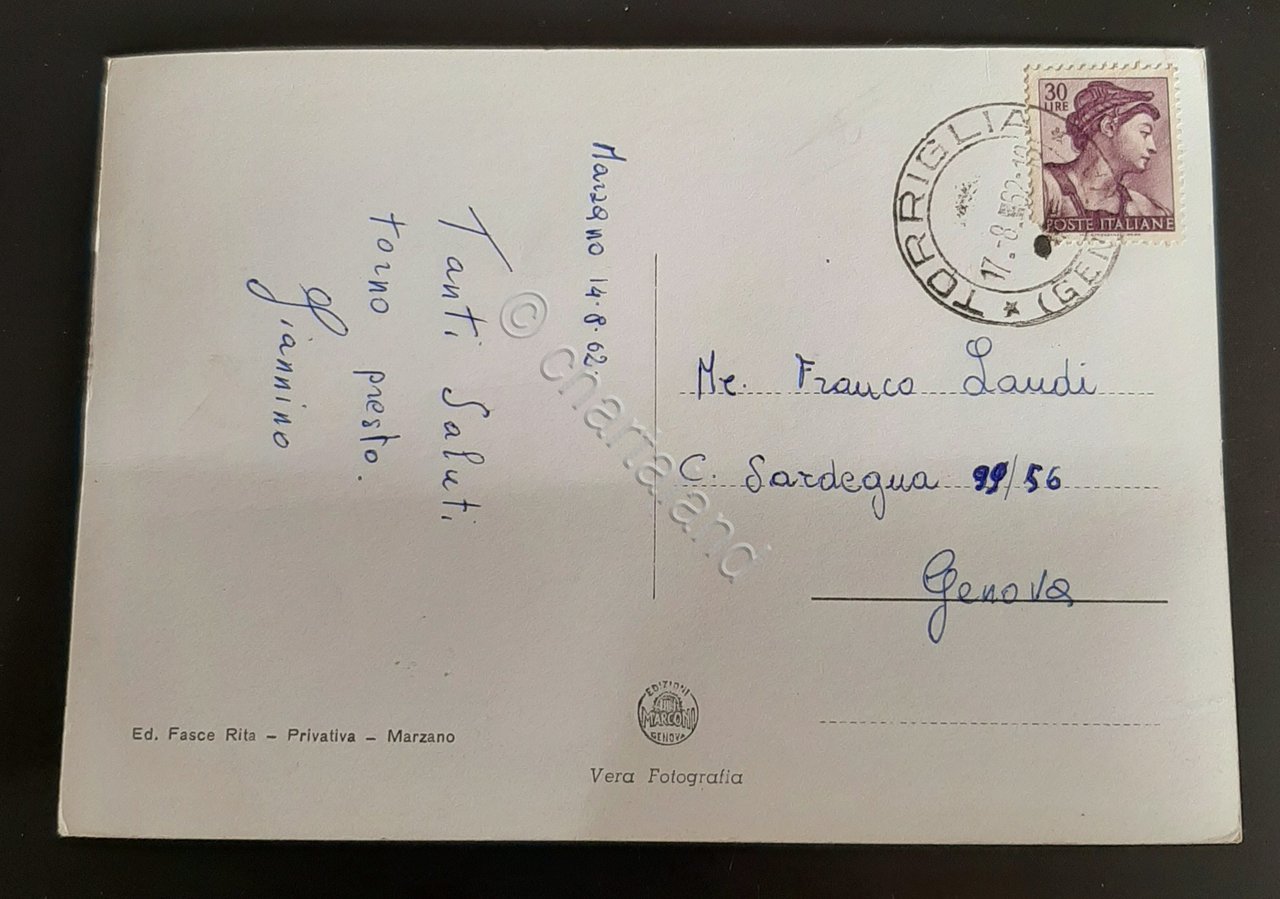 Marzano 14.8.62.
Tanti Saluti
torno presto.
Giannino
30
LIRE
POSTE ITALIANE
TORRIGLIA
(GEN
17.-8
62.
Mr. Franco Landi
C. Sardegna 99/56
Genova
EDIZIONI
MARCONI
GENOVA
Ed. Fasce Rita – Privativa – Marzano
Vera Fotografia
© chartaland